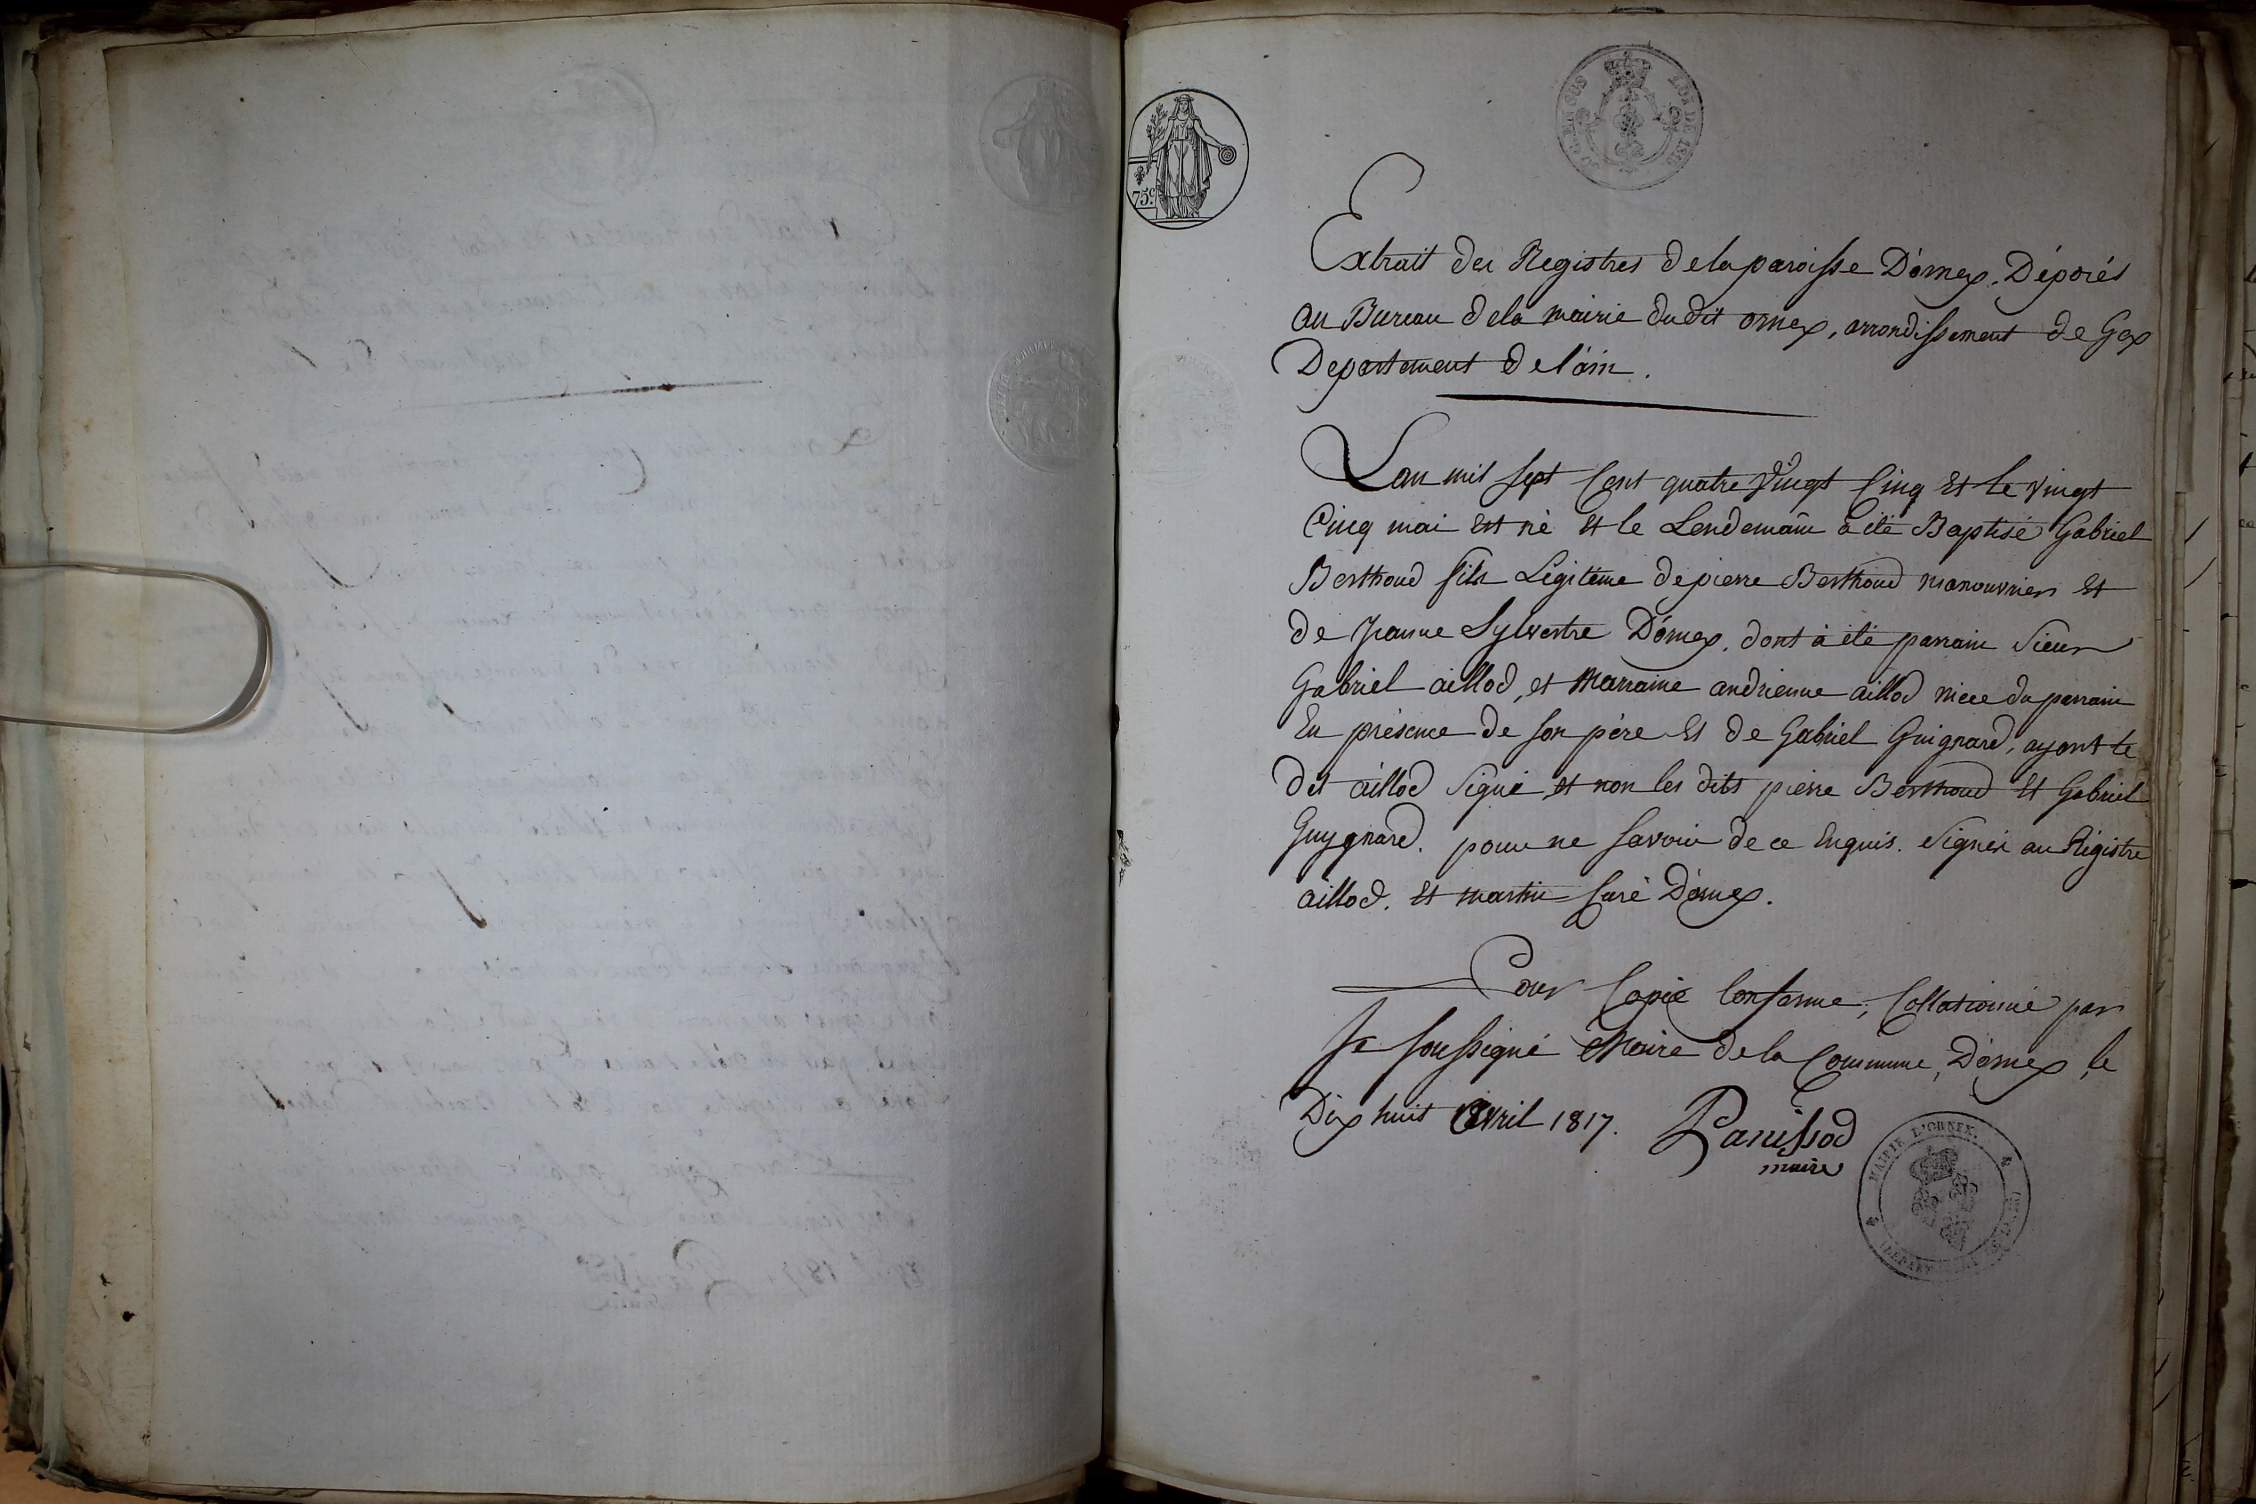 75c
LOI DE 1816
Extrait des Registres de la paroisse D'ornex, Déposés
au Bureau de la mairie du dit ornex, arrondissement de Gex
Département de l'ain.
L'an mil sept Cent quatre Vingt Cinq et le vingt
Cinq mai est né et le Lendemain à été Baptisé Gabriel
Berthoud fils Légitime de pierre Berthoud manouvrier et
de Jeanne Sylvestre D'ornex, dont à été parrain Sieur
Gabriel aillod, et Marraine andrienne aillod niece du parrain
En présence de son père et de Gabriel Guignard, ayant le
dit aillod signé et non les dits pierre Berthoud et Gabriel
Guygnard. pour ne savoir de ce Enquis. Signés au Régistre
aillod. et martin Curé D'ornex.
Pour Copie Conforme, Collationné par
Je soussigné Maire de la Commune, D'ornex, le
Dix huit Avril 1817. Panissod
maire
MAIRIE D'ORNEX.